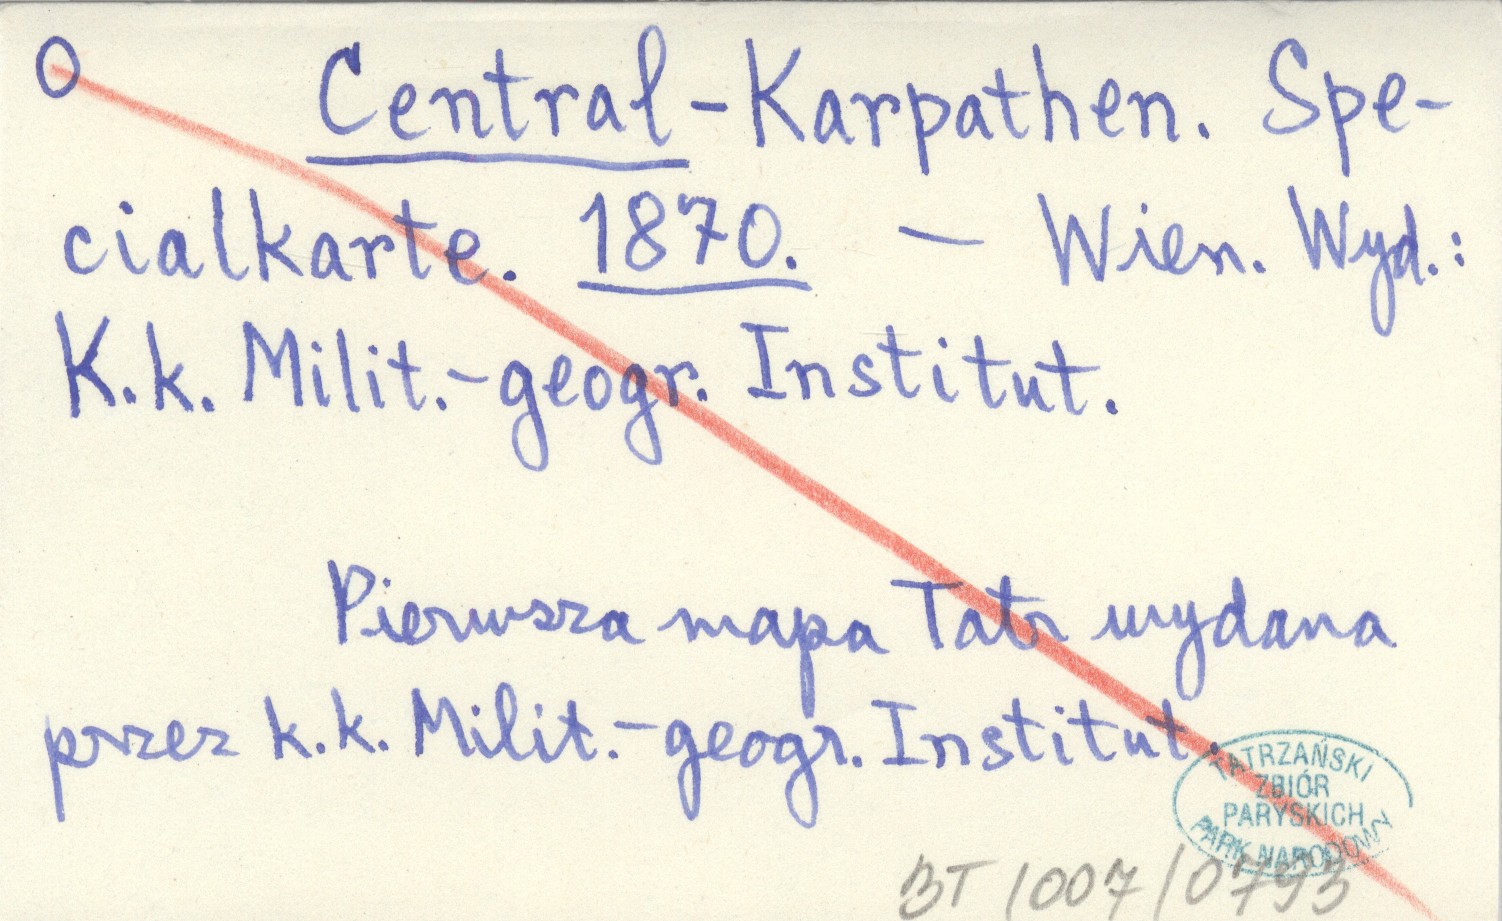 O Central-Karpathen. Spe-
cialkarte. 1870. — Wien. Wyd.:
K.k. Milit.-geogr. Institut.
Pierwsza mapa Tatr wydana
przez k.k. Milit.-geogr. Institut.
TATRZAŃSKI
ZBIÓR
PARYSKICH
PARK NARODOWY
BT/007/0793